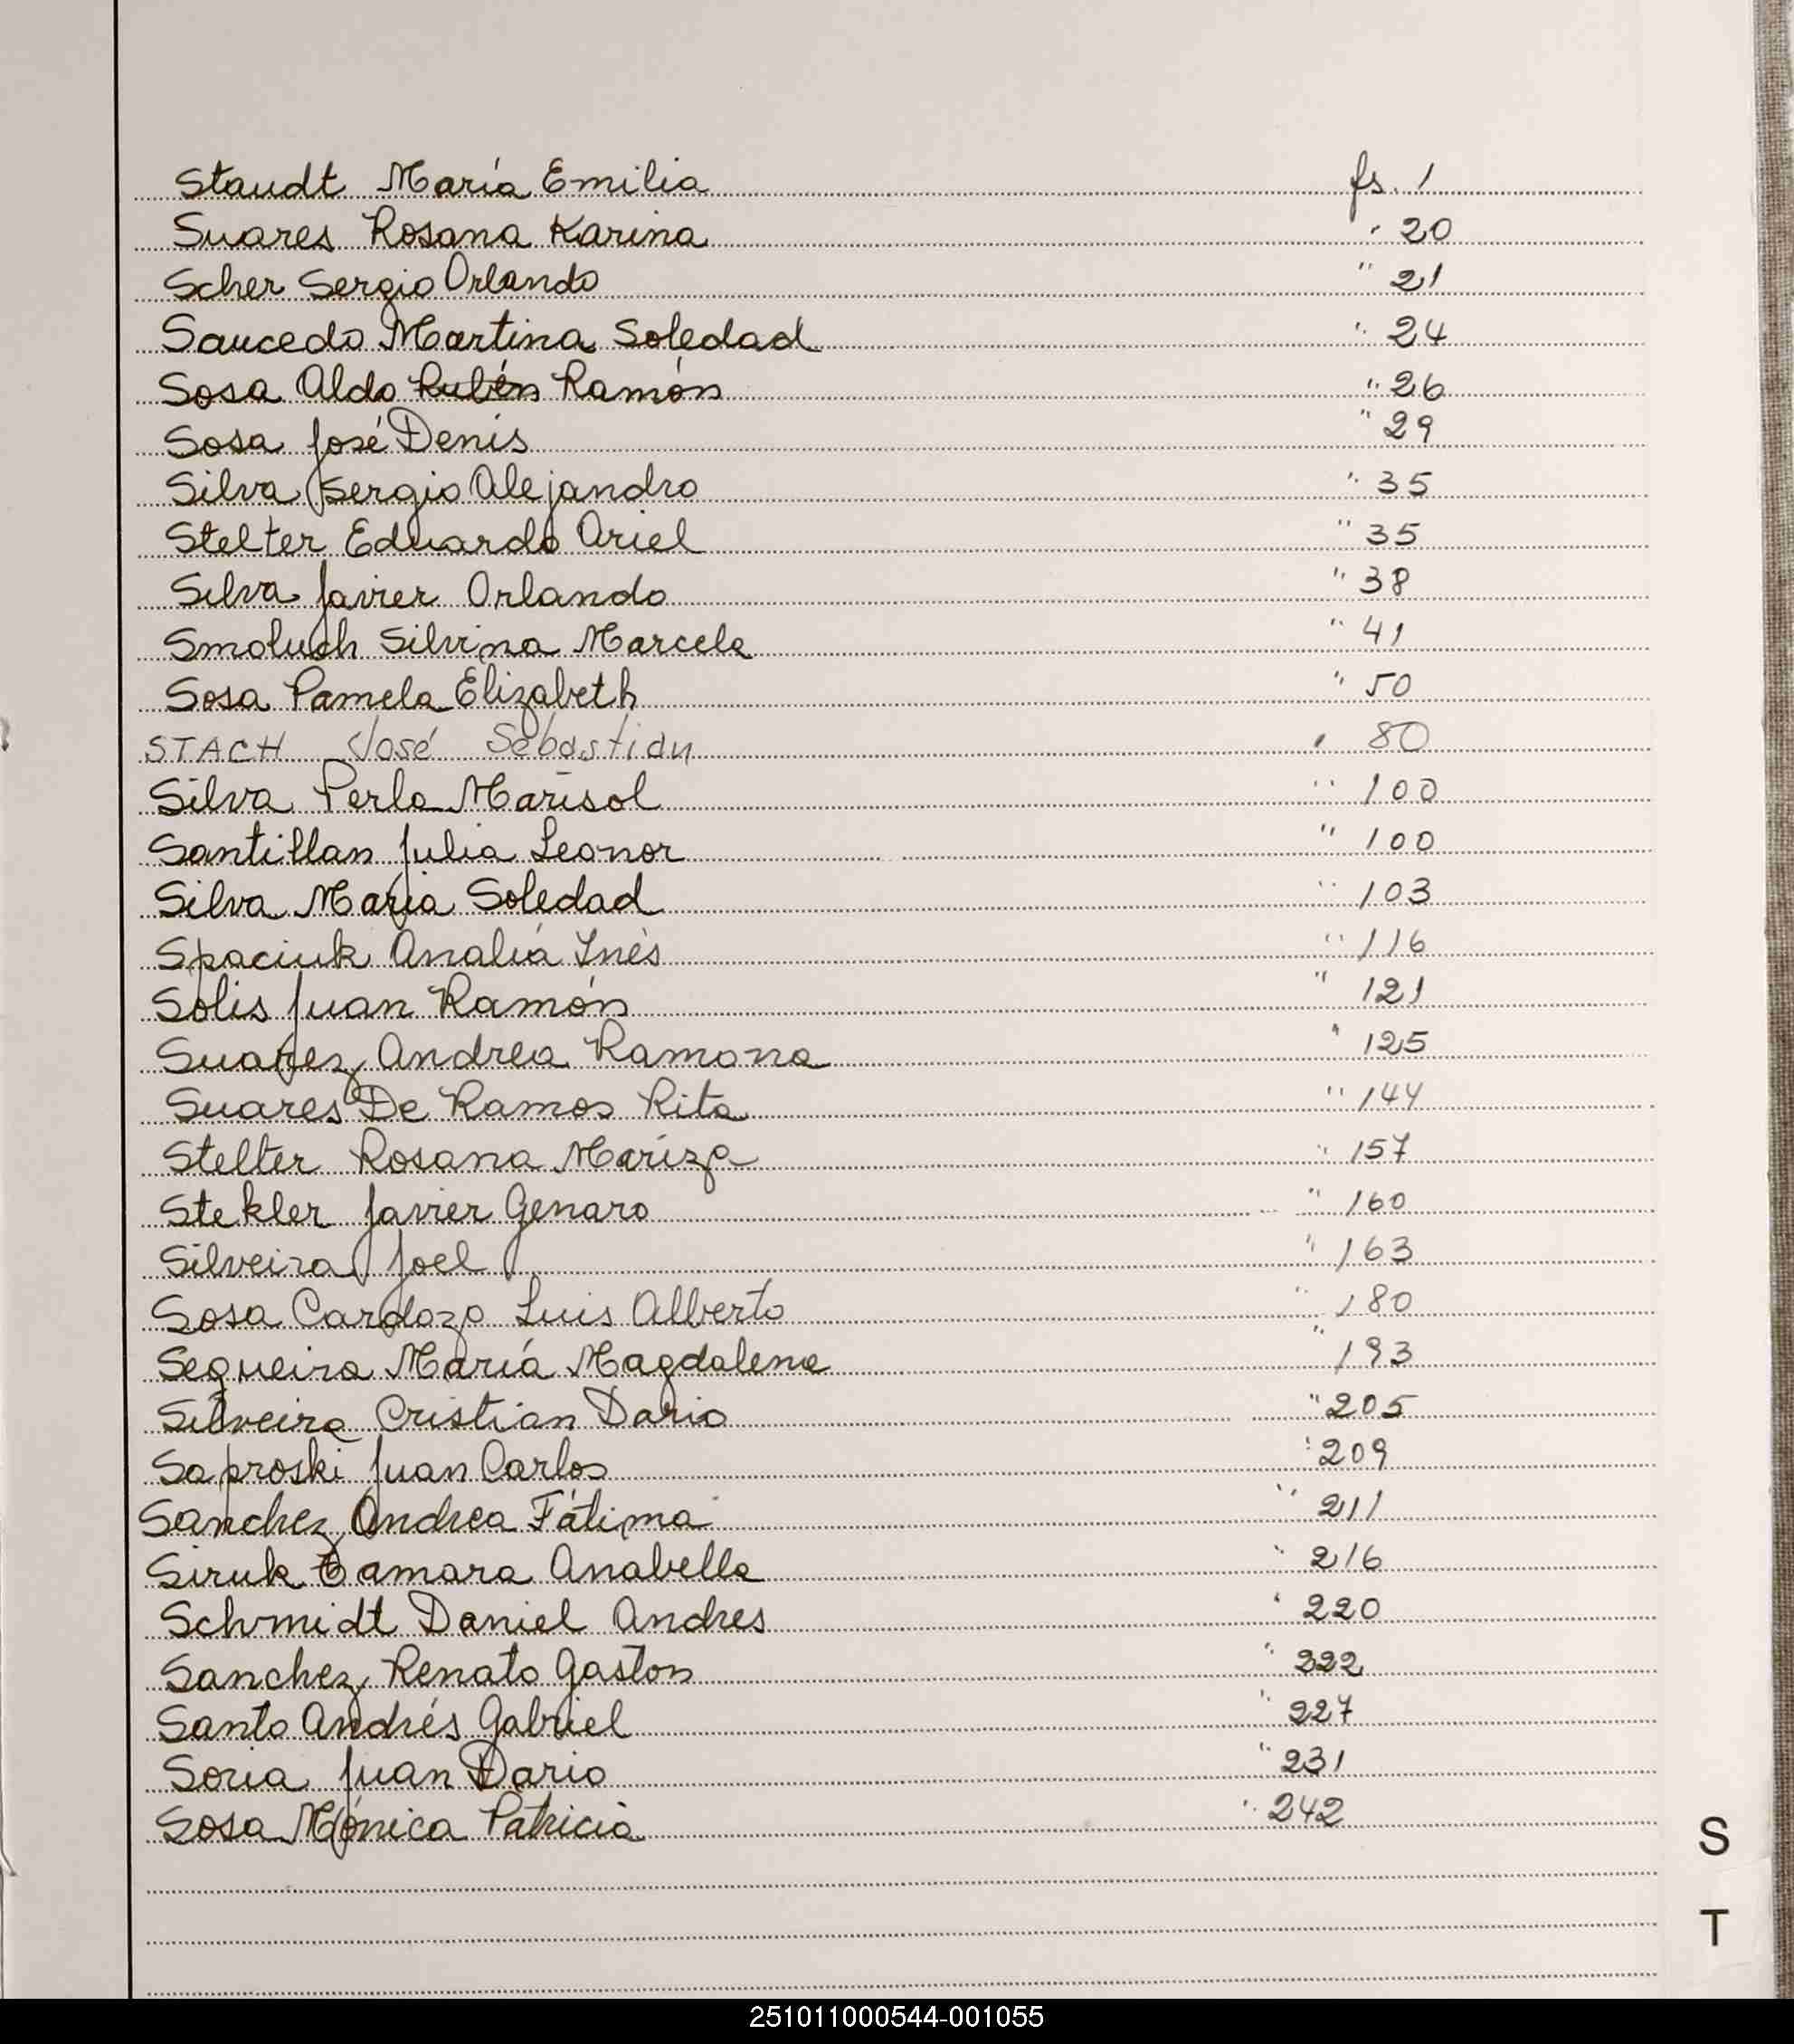 Staudt María Emilia fs. 1
Suares Rosana Karina " 20
Scher Sergio Orlando " 21
Saucedo Martina Soledad " 24
Sosa Aldo Rubén Ramón " 26
Sosa José Denis " 29
Silva Sergio Alejandro " 35
Stelter Eduardo Ariel " 35
Silva Javier Orlando " 38
Smoluch Silvina Marcela " 41
Sosa Pamela Elizabeth " 50
STACH José Sebastian " 80
Silva Perla Marisol " 100
Santillan Julia Leonor " 100
Silva María Soledad " 103
Spaciuk Analia Inés " 116
Solis Juan Ramón " 121
Suarez Andrea Ramona " 125
Suares De Ramos Rita " 144
Stelter Rosana Mariza " 157
Stekler Javier Genaro " 160
Silveira Joel " 163
Sosa Cardozo Luis Alberto " 180
Sequeira María Magdalena " 193
Silveira Cristian Dario " 205
Saproski Juan Carlos " 209
Sanchez Andrea Fátima " 211
Siruk Tamara Anabella " 216
Schmidt Daniel Andres " 220
Sanchez Renato Gaston " 222
Santo Andrés Gabriel " 227
Soria Juan Dario " 231
Sosa Mónica Patricia " 242
S
T
251011000544-001055